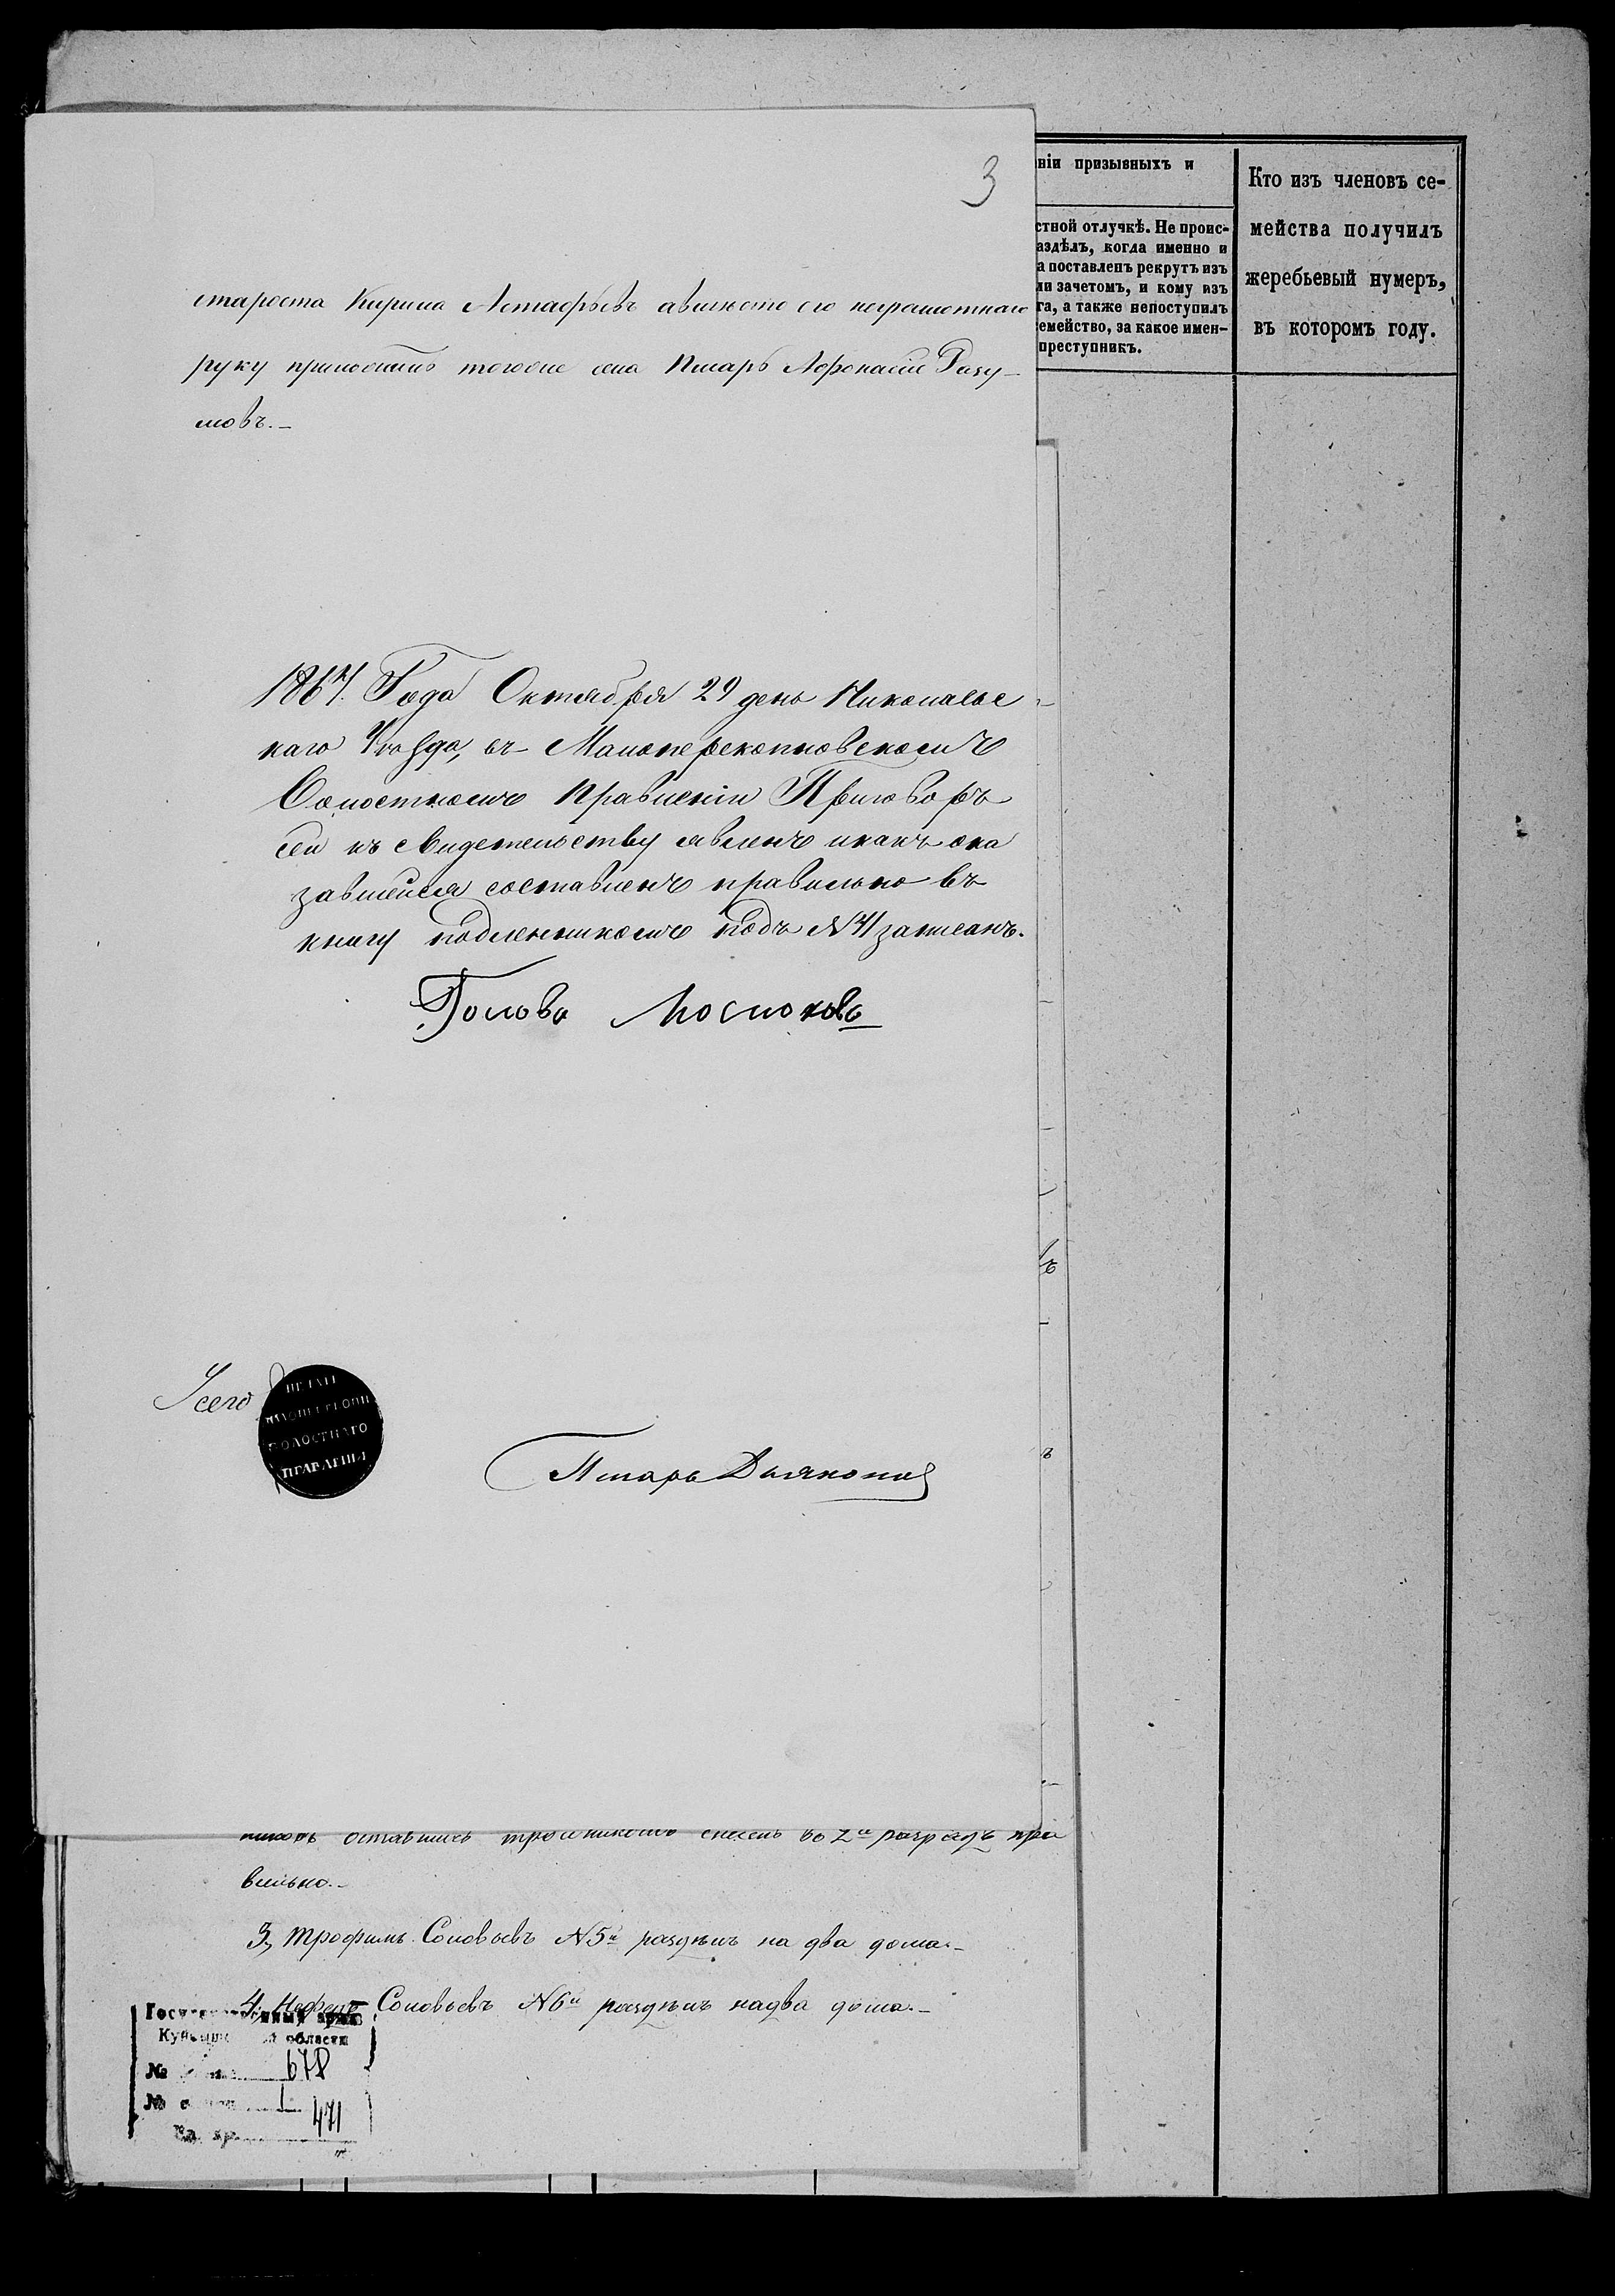 3
староста Кирила Астафьевъ авместо его неграмотнаго
руку приложилъ тогоже села Писарь Афонасие Разу-
мовъ.-
1867. Года Октября 29 день Николаевс-
каго Уѣзда, въ Малоперекопновскомъ
Волостномъ Правленіи Приговоръ
сей къ свидетельству явленъ икакъ ока
завшейся составленъ правильно въ
книгу подленникомъ подъ №41 записанъ.
Голова
У сего
ПЕЧАТЬ
ВОЛОСТНАГО
ПРАВЛЕНІЯ
Писарь Дьяконов
ніи призывныхъ и
стной отлучкѣ. Не проис-
аздѣлъ, когда именно и
а поставленъ рекрутъ изъ
ли зачетомъ, и кому изъ
га, а также непоступилъ
емейство, за какое имен-
преступникъ.
Кто изъ членовъ се-
мейства получилъ
жеребьевый нумеръ,
въ которомъ году.
оставшись тройникомъ снесенъ во 2й разрядъ пра
вильно.-
3, Трофимъ Соловьевъ №5й раздѣлъ на два дома.-
4, Соловьевъ №6й раздѣлъ надва дома.-
Государственный архив
Куйбышевской области
№ 678
№ 1
Ед. хр. 471